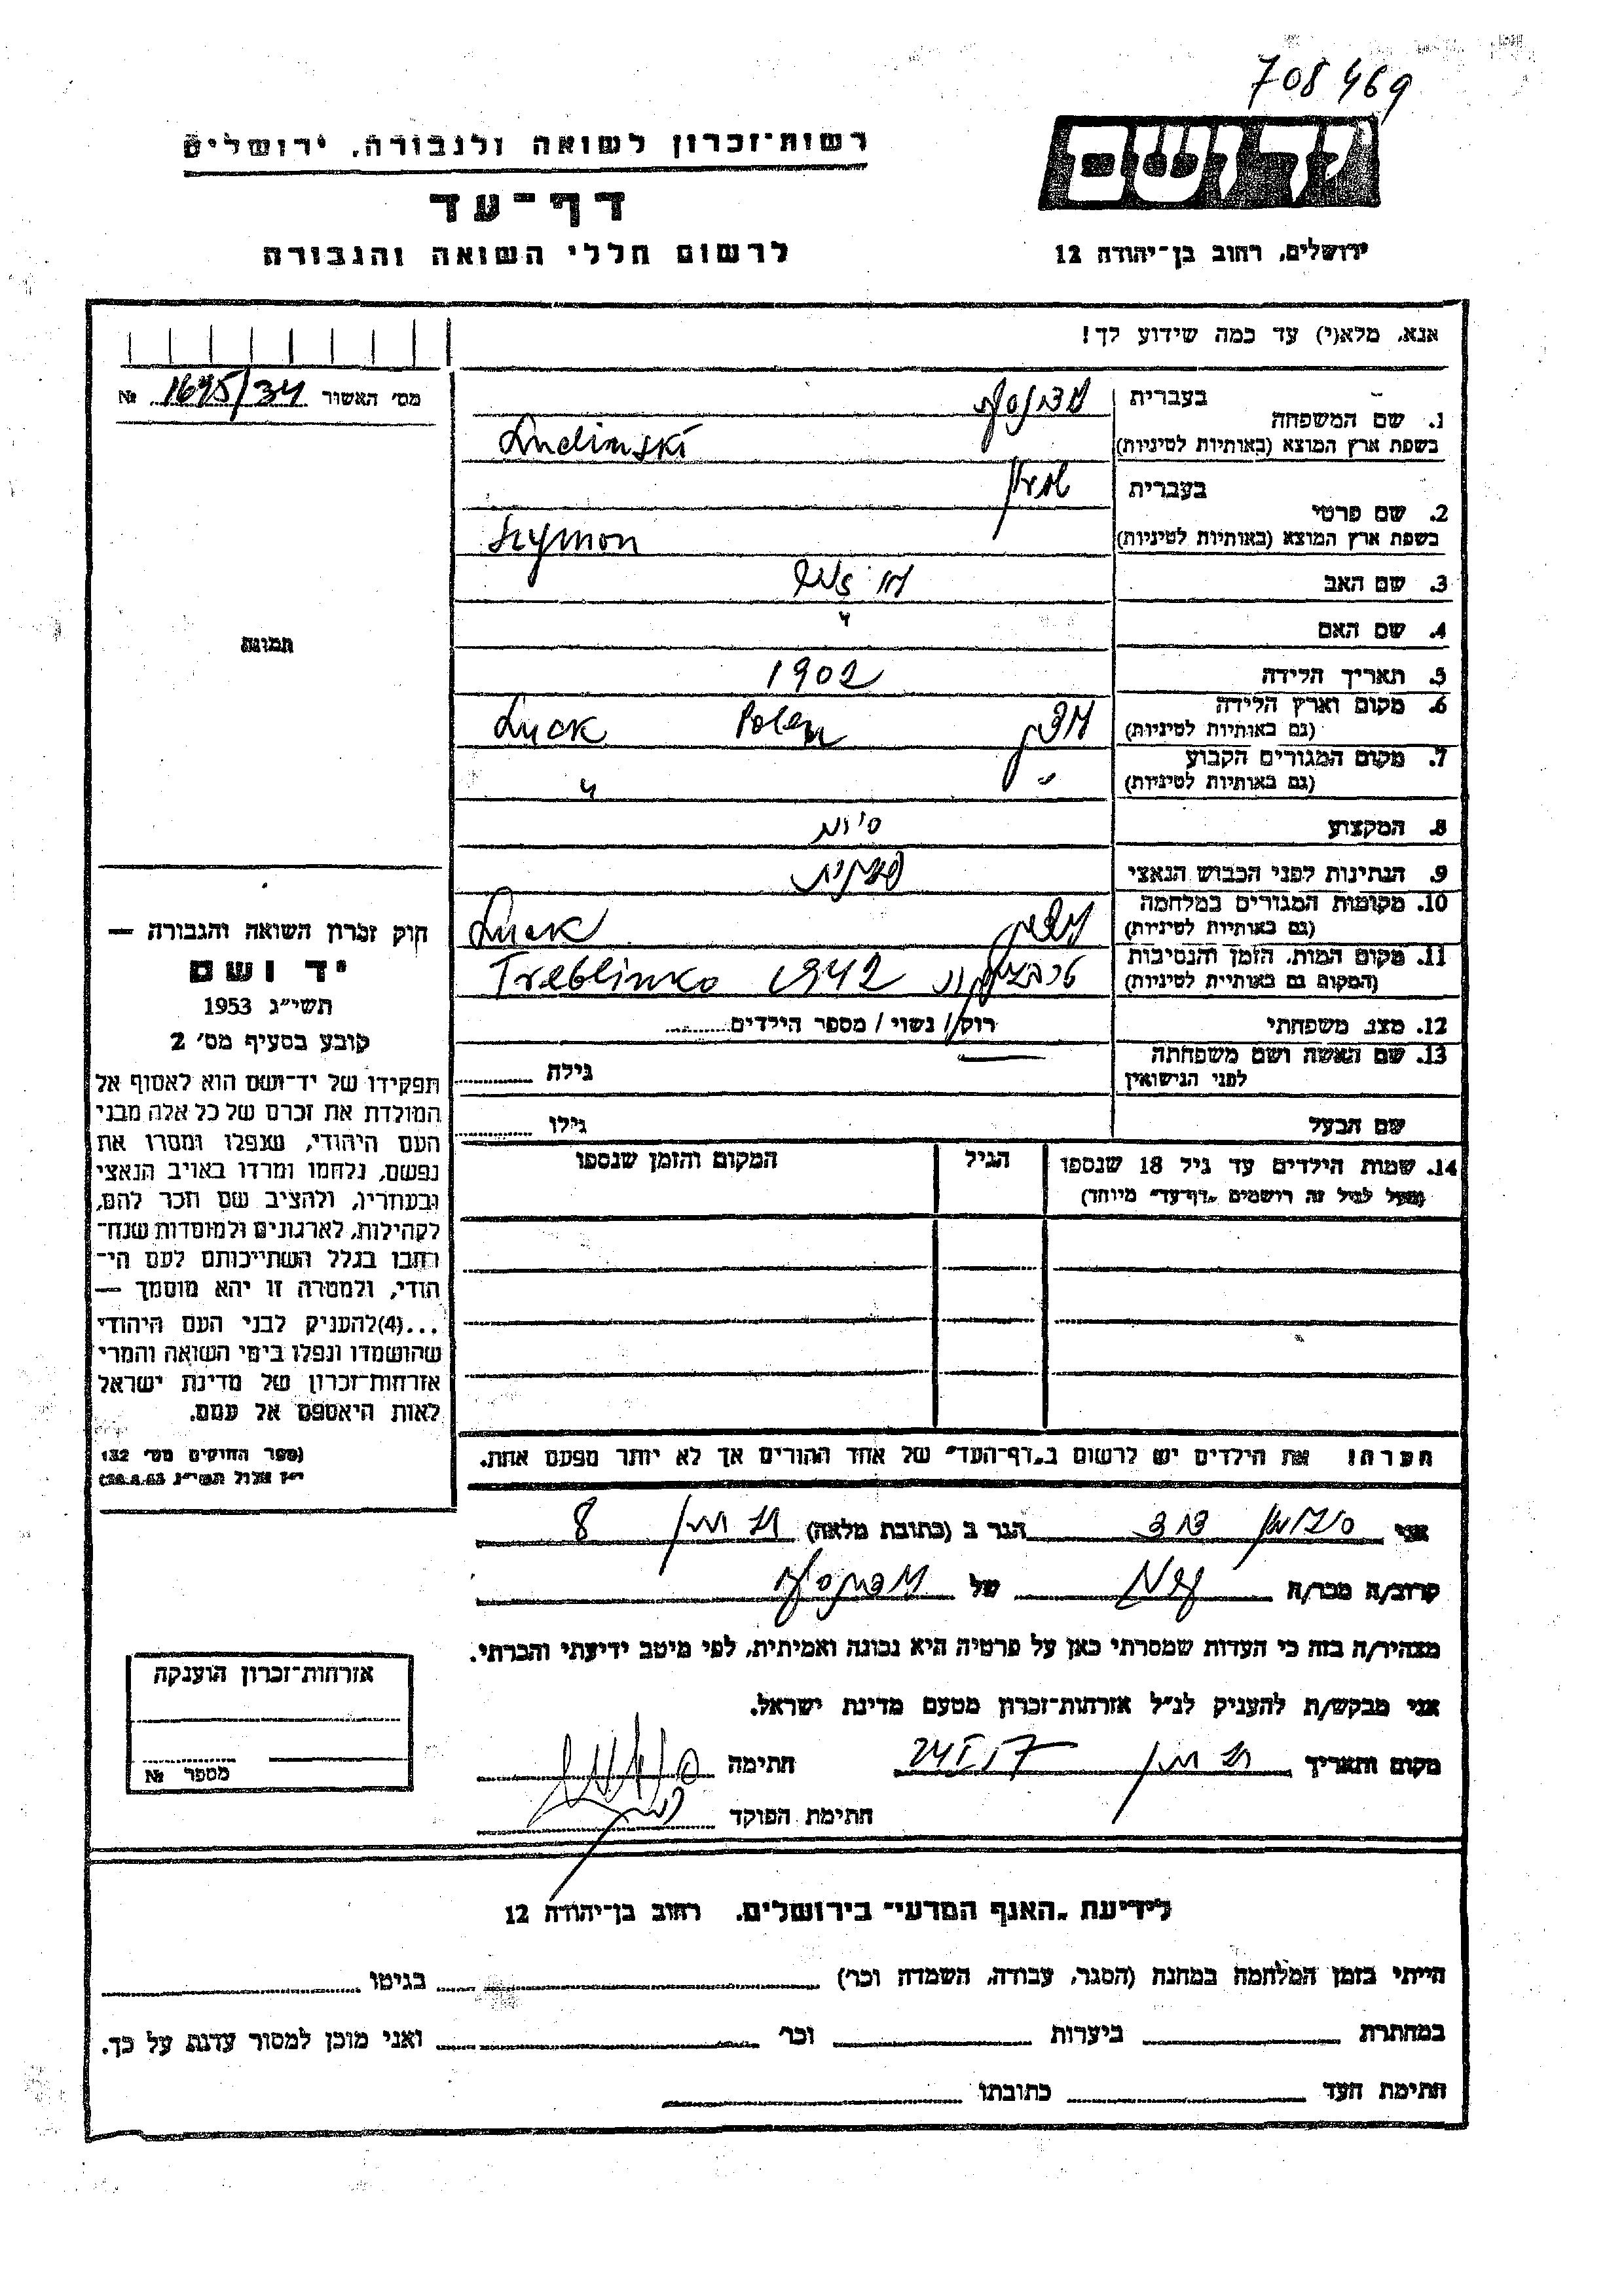 708469
רשות־זכרון לשואה ולגבורה, ירושלים
דף־עד
לרשום חללי השואה והגבורה
יד ושם
ירושלים, רחוב בן־יהודה 12
אנא, מלא(י) עד כמה שידוע לך!
מס׳ האשור 1695/34 №
1. שם המשפחה
בעברית
בשפת ארץ המוצא (באותיות לטיניות) Ludimski
2. שם פרטי
בעברית
בשפת ארץ המוצא (באותיות לטיניות) Szymon
3. שם האב
4. שם האם
5. תאריך הלידה 1902
6. מקום וארץ הלידה
(גם באותיות לטיניות) Polen Luck
7. מקום המגורים הקבוע
(גם באותיות לטיניות)
8. המקצוע
9. הנתינות לפני הכבוש הנאצי
10. מקומות המגורים במלחמה
(גם באותיות לטיניות) Luck
11. מקום המות, הזמן והנסיבות
(המקום גם באותיות לטיניות) טרבלינקה 1942 Treblinka
12. מצב משפחתי
רוק/ נשוי / מספר הילדים
13. שם האשה ושם משפחתה
לפני הנישואין
גילה
שם הבעל
גילו
14. שמות הילדים עד גיל 18 שנספו
(מעל לגיל זה רושמים „דף־עד״ מיוחד)
הגיל
המקום והזמן שנספו
הערה: את הילדים יש לרשום ב„דף־העד״ של אחד ההורים אך לא יותר מפעם אחת.
תמונה
חוק זכרון השואה והגבורה —
יד ושם
תשי״ג 1953
קובע בסעיף מס׳ 2
תפקידו של יד־ושם הוא לאסוף אל
המולדת את זכרם של כל אלה מבני
העם היהודי, שנפלו ומסרו את
נפשם, נלחמו ומרדו באויב הנאצי
ובעוזריו, ולהציב שם וזכר להם,
לקהילות, לארגונים ולמוסדות שנח־
רבו בגלל השתייכותם לעם הי־
הודי, ולמטרה זו יהא מוסמך —
...(4)להעניק לבני העם היהודי
שהושמדו ונפלו בימי השואה והמרי
אזרחות־זכרון של מדינת ישראל
לאות היאספם אל עמם.
(ספר החוקים מס׳ 132
י״ז אלול תשי״ג 28.8.53)
אני הגר ב (כתובת מלאה) 8
קרוב/ה מכר/ה של
מצהיר/ה בזה כי העדות שמסרתי כאן על פרטיה היא נכונה ואמיתית, לפי מיטב ידיעתי והכרתי.
אני מבקש/ת להעניק לנ״ל אזרחות־זכרון מטעם מדינת ישראל.
מקום ותאריך חתימה
חתימת הפוקד
אזרחות־זכרון הוענקה
מספר №
לידיעת „האגף המדעי״ בירושלים, רחוב בן־יהודה 12
הייתי בזמן המלחמה במחנה (הסגר, עבודה, השמדה וכר׳) בגיטו
במחתרת ביערות וכר׳ ואני מוכן למסור עדות על כך.
חתימת העד כתובתו